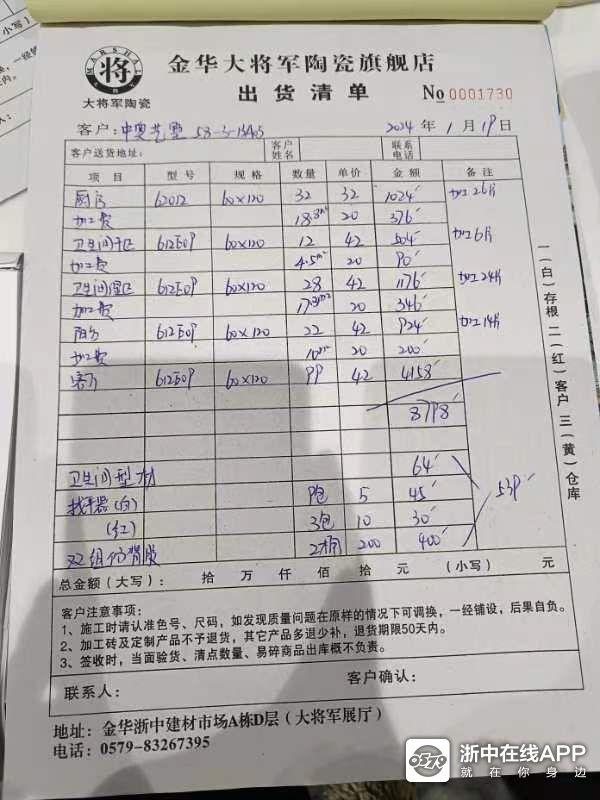 MARSHAL
将
大将军陶瓷
金华大将军陶瓷旗舰店
出货清单 No 0001730
客户: 58-3- 2024年1月19日
客户送货地址: 客户姓名 联系电话
项目 型号 规格 数量 单价 金额 备注
厨房 62012 60x120 32 32 1024 加工26片
加工费 18.8m² 20 376
卫生间干区 612E09 60x120 12 42 504 加工6片
加工费 4.5m² 20 90
卫生间湿区 612E09 60x120 28 42 1176 加工24片
加工费 17.3m² 20 346
阳台 612E09 60x120 22 42 924 加工14片
加工费 10m² 20 200
客厅 612E09 60x120 99 42 4158
8798
卫生间型材 64
找平器(白) 9包 5 45 539
(红) 3包 10 30
双组份背胶 2桶 200 400
总金额(大写): 拾 万 仟 佰 拾 元 (小写) 元
客户注意事项:
1、施工时请认准色号、尺码,如发现质量问题在原样的情况下可调换,一经铺设,后果自负。
2、加工砖及定制产品不予退货,其它产品多退少补,退货期限50天内。
3、签收时,当面验货、清点数量、易碎商品出库概不负责。
联系人: 客户确认:
地址:金华浙中建材市场A栋D层(大将军展厅)
电话:0579-83267395
一(白)存根 二(红)客户 三(黄)仓库
浙中在线APP
就在你身边